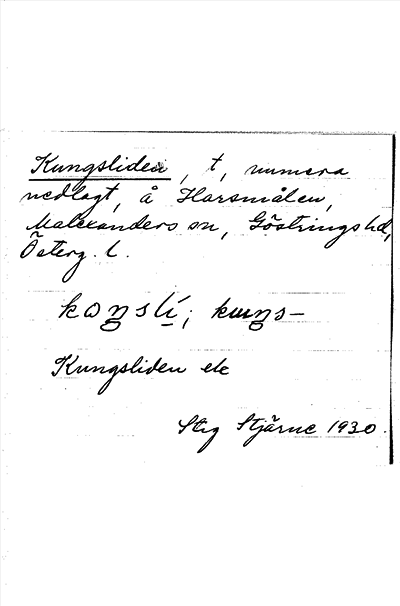 Kungsliden, t, numera
nedlagt, å Harsmålen,
Malexanders sn, Göstrings hd,
Österg. l.
koŋslí; kuŋs-
Kungsliden ek
Stig Stjärne 1930.